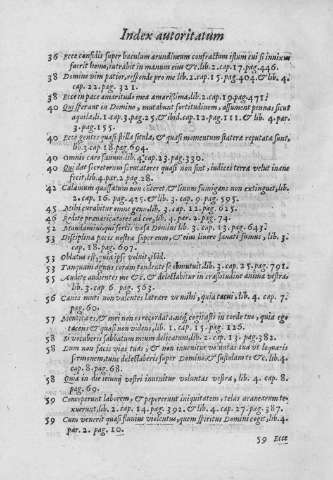 Index autoritatum
36 Ecce confidis super baculum arundineum confractum istum cui si innixus
fuerit homo, intrabit in manum eius &c. lib. 2. cap. 17. pag. 446.
38 Domine vim patior, responde pro me lib. 2. cap. 15. pag. 404. & lib. 4.
cap. 22. pag. 321.
38 Ecce in pace amaritudo mea amarissima. lib. 2. cap. 19. pag. 471.
40 Qui sperant in Domino, mutabunt fortitudinem, assument pennas sicut
aquila. lib. 1. cap. 3. pag. 25. & ibid. cap. 12. pag. 111. & lib. 4. par
3. pag. 155.
40 Ecce gentes quasi stilla situlæ, & quasi momentum stateræ reputatæ sunt.
lib. 3. cap. 18. pag. 694.
40 Omnis caro fænum lib. 4. cap. 23. pag. 330.
40 Qui dat secretorum scrutatores quasi non sint, iudices terræ velut inane
fecit. lib. 4. par. 2. pag. 28.
42 Calamum quassatum non cõteret & linum fumigans non extinguet. lib.
2. cap. 16. pag. 425. & lib. 3. cap. 9. pag. 595.
45 Mihi curabitur omne genu. lib. 3. cap. 12. pag. 625.
46 Redite prævaricatores ad cor. lib. 4. par. 2. pag. 74.
52 Mundamini qui fertis vasa Domini lib. 3. cap. 13. pag. 643.
53 Disciplina pacis nostræ super eum, & eius livore sanati sumus, lib. 3.
cap. 18. pag. 697.
53 Oblatus est, quia ipse voluit, ibid.
53 Tanquam agnus coram tondente se obmutuit. lib. 3. cap. 25. pag. 791.
55 Audite audientes me &c, & delectabitur in crassitudine anima vestra,
lib. 3. cap. 6. pag. 563.
56 Canes muti non valentes latrare vẽ mihi, quia tacui. lib. 4. cap. 7.
pag. 60.
57 Mentita es & mei non es recordata, neq. cogitasti in corde tuo, quia ego
tacens & quasi non videns, lib. 1. cap. 15. pag. 126.
58 Si vocaberis sabbatum meum delicatum, lib. 2. cap. 13. pag. 382.
58 Dum non facis vias tuas, & non invenitur voluntas tua vt loquaris
sermonem, tunc delectaberis super Domino, & sustollam te &c. lib. 4.
cap. 8. pag. 68.
58 Quia in die ieiunij vestri invenitur voluntas vestra, lib. 4. cap. 8.
pag. 69.
59 Conceperunt laborem, & pepererunt iniquitatem, telas aranearum te-
xuerunt. lib. 2. cap. 14. pag. 392. & lib. 4. cap. 27. pag. 387.
59 Cum venerit quasi fluvius violentus, quem spiritus Domini cogit, lib. 4.
par. 2. pag. 10.
59 Ecce